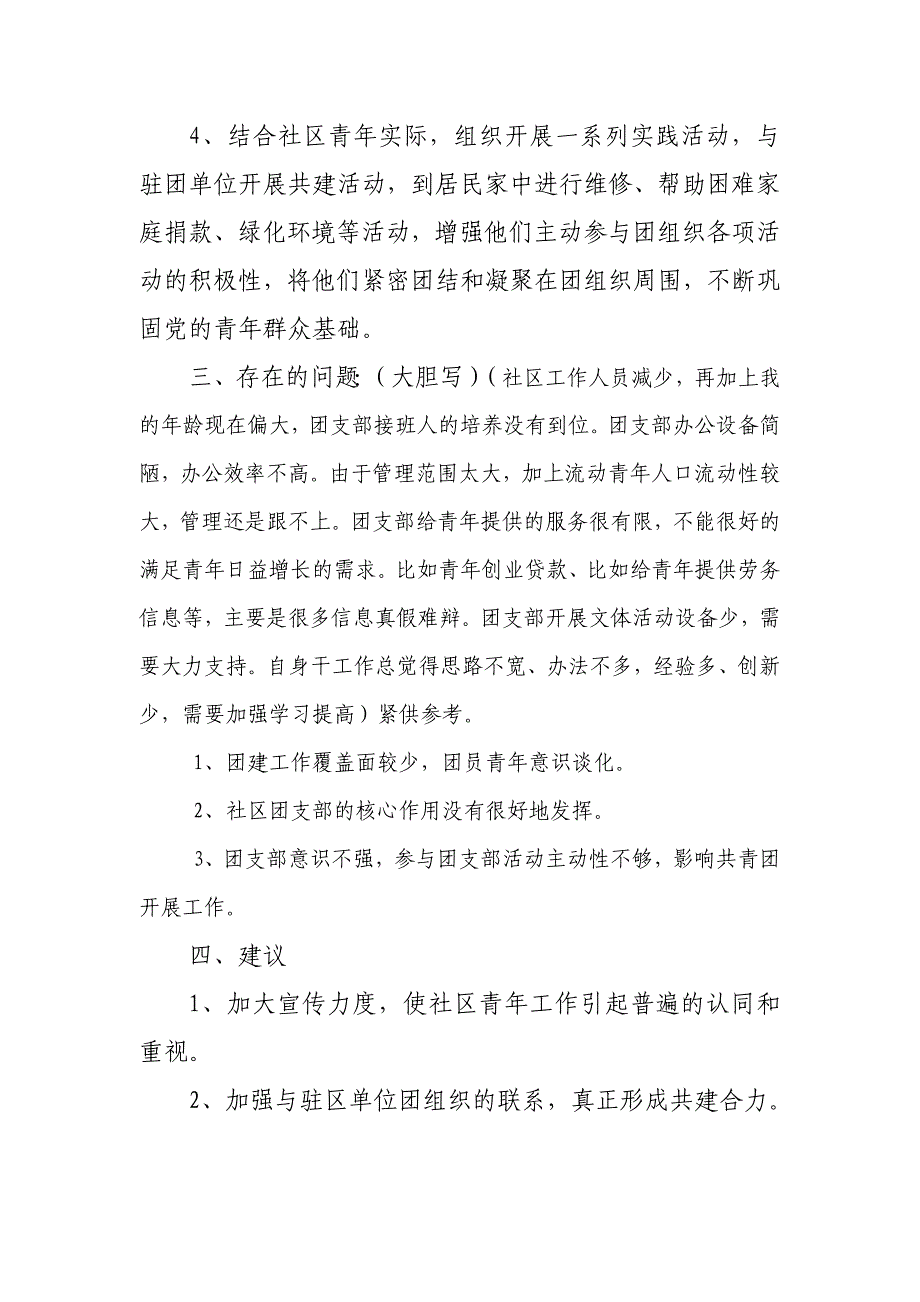 4、结合社区青年实际，组织开展一系列实践活动，与
驻团单位开展共建活动，到居民家中进行维修、帮助困难家
庭捐款、绿化环境等活动，增强他们主动参与团组织各项活
动的积极性，将他们紧密团结和凝聚在团组织周围，不断巩
固党的青年群众基础。
三、存在的问题：（大胆写）（社区工作人员减少，再加上我
的年龄现在偏大，团支部接班人的培养没有到位。团支部办公设备简
陋，办公效率不高。由于管理范围太大，加上流动青年人口流动性较
大，管理还是跟不上。团支部给青年提供的服务很有限，不能很好的
满足青年日益增长的需求。比如青年创业贷款、比如给青年提供劳务
信息等，主要是很多信息真假难辩。团支部开展文体活动设备少，需
要大力支持。自身干工作总觉得思路不宽、办法不多，经验多、创新
少，需要加强学习提高）紧供参考。
1、团建工作覆盖面较少，团员青年意识谈化。
2、社区团支部的核心作用没有很好地发挥。
3、团支部意识不强，参与团支部活动主动性不够，影响共青团
开展工作。
四、建议
1、加大宣传力度，使社区青年工作引起普遍的认同和
重视。
2、加强与驻区单位团组织的联系，真正形成共建合力。